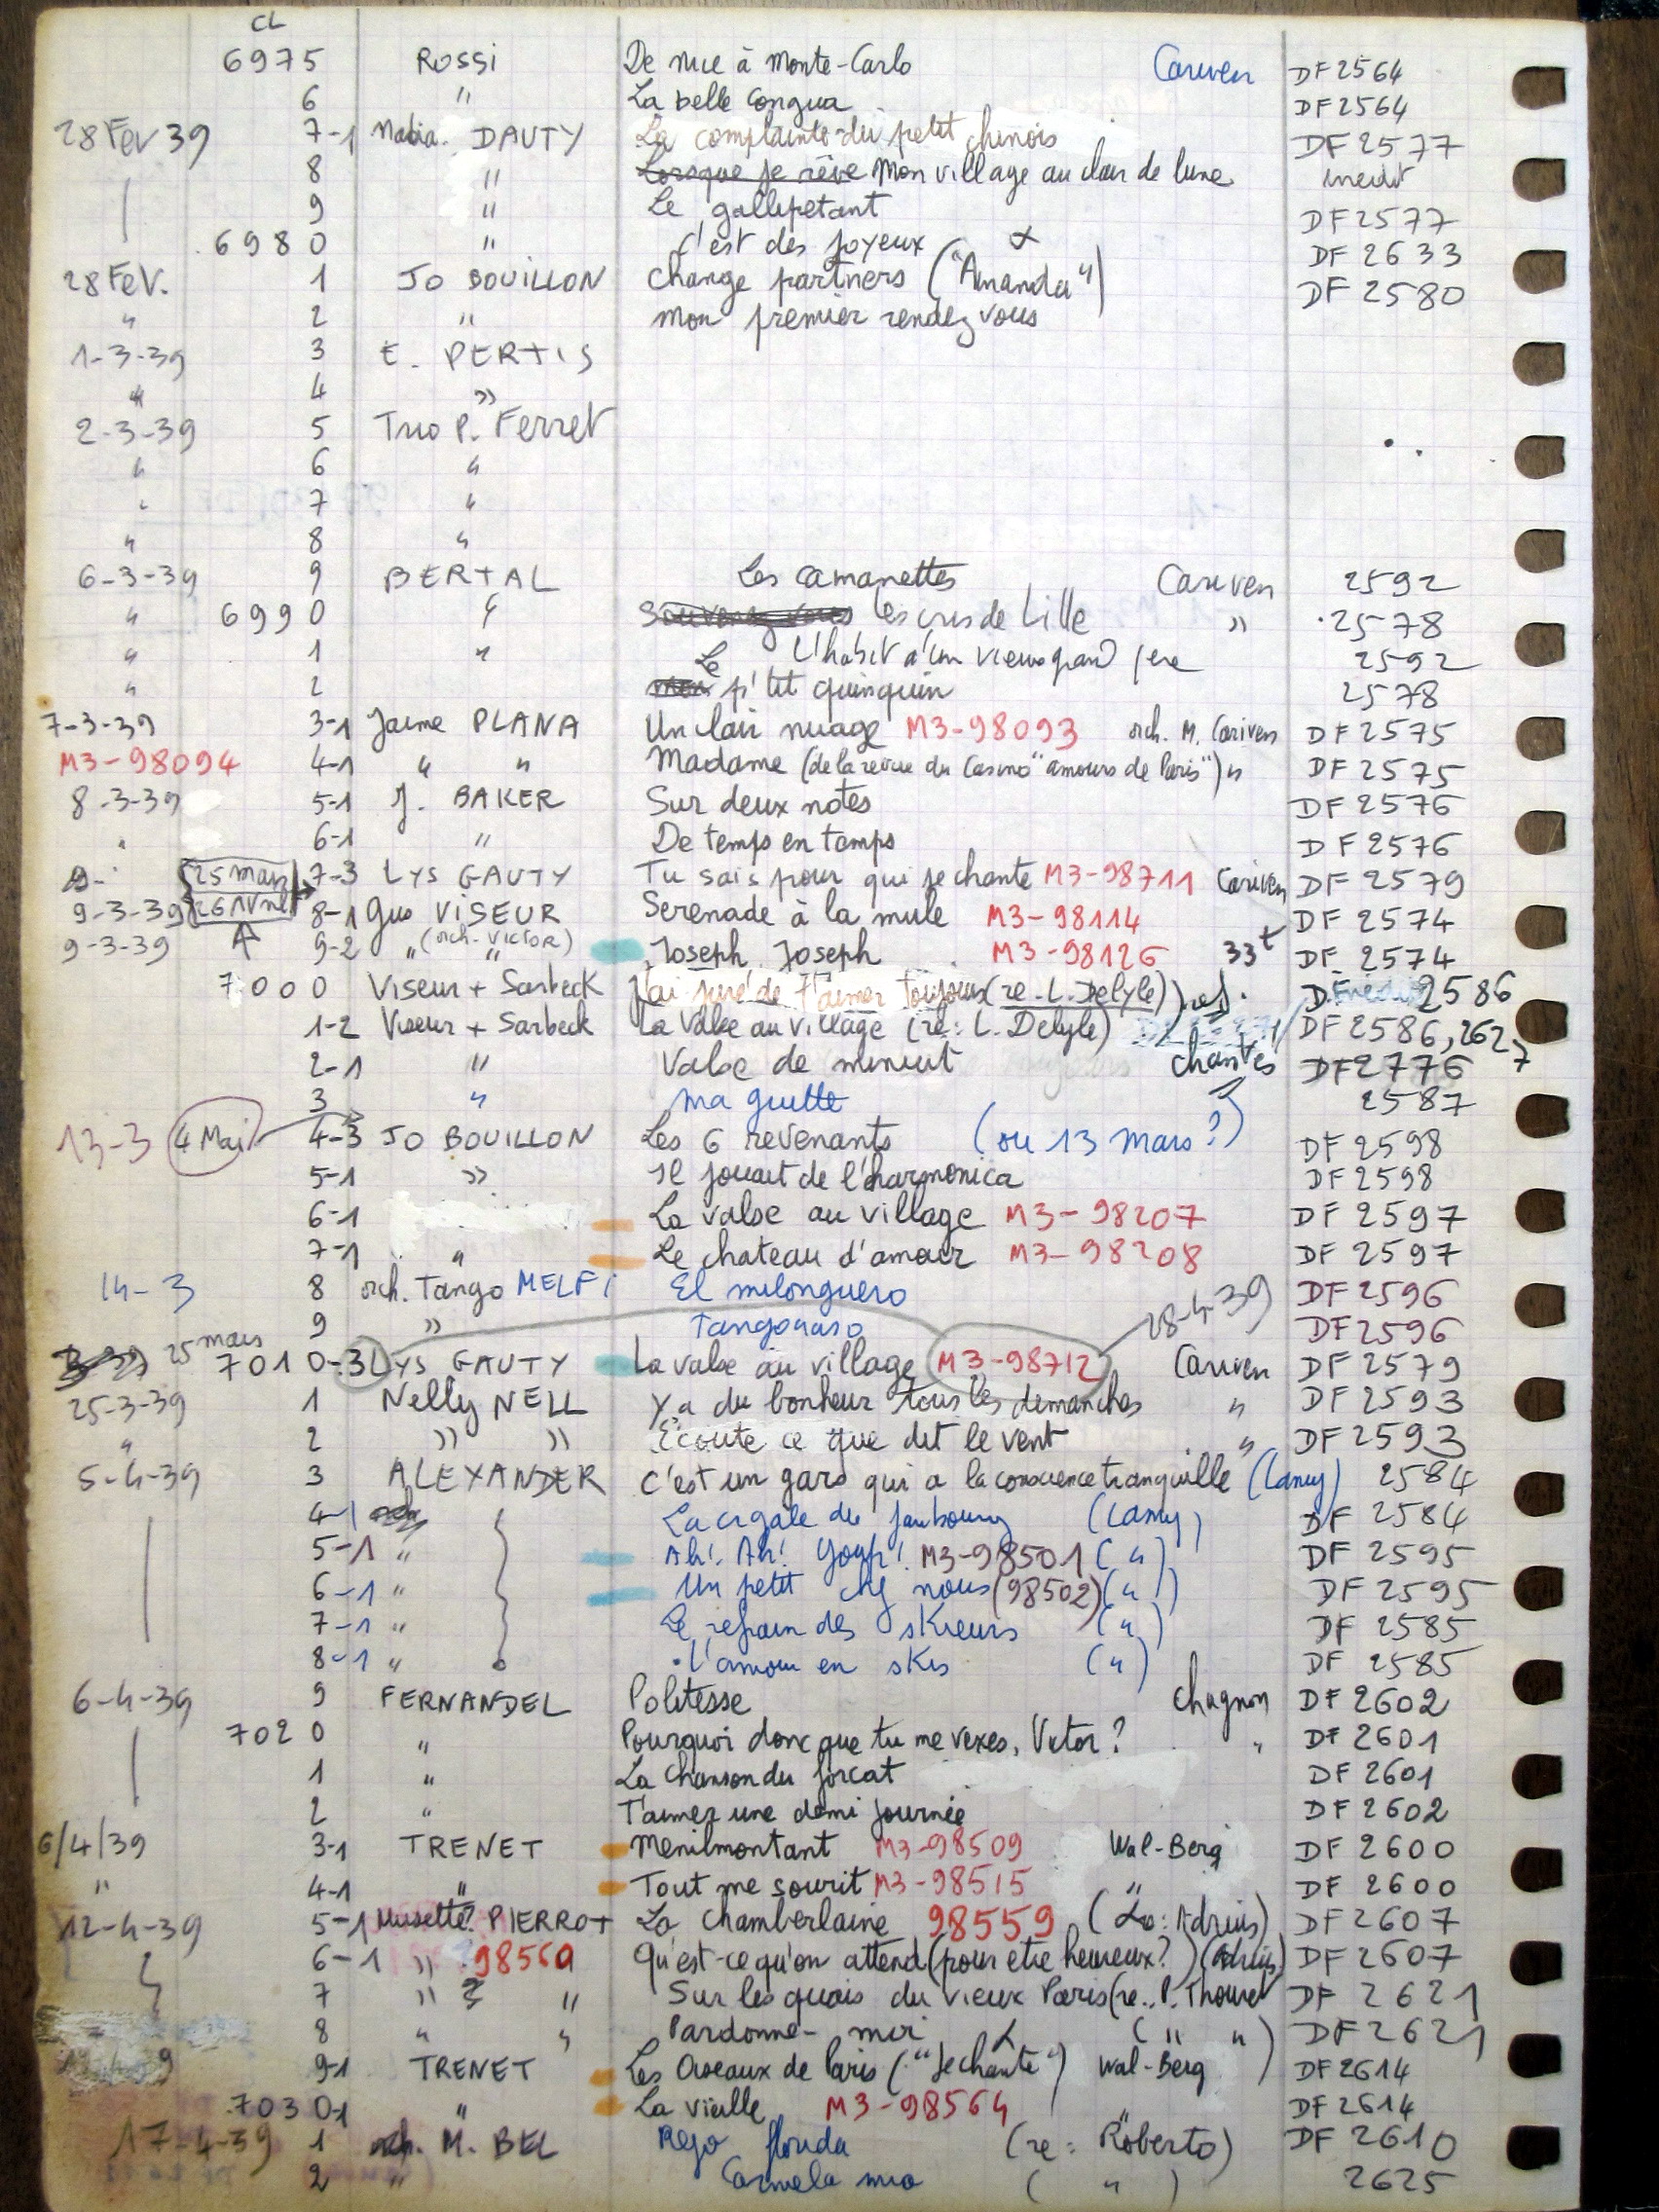 CL
6975 ROSSI De nice à Monte-Carlo Cariven DF 2564
6 " La belle Conguá DF 2564
28 Fev 39 7-1 Nadia. DAUTY La complainte du petit chinois DF 2577
8 " Lorsque je rêve Mon village au clair de lune inedit
9 " Le gallipetant DF 2577
6980 " C'est des joyeux DF 2633
28 Fev. 1 JO BOUILLON Change partners ("Amanda") DF 2580
" 2 " Mon premier rendez vous
1-3-39 3 E. PERTIS
" 4 "
2-3-39 5 Trio P. Ferret
" 6 "
" 7 "
" 8 "
6-3-39 9 BERTAL Les camanettes Cariven 2592
" 6990 " Les cris de Lille " 2578
" 1 " L'habit d'un vieux grand pere 2592
" 2 Le p'tit quinquin 2578
7-3-39 3-1 Jaime PLANA Un clair nuage M3-98093 orch. M. Cariven DF 2575
M3-98094 4-1 " " Madame (de la revue du Casino "amours de Paris") " DF 2575
8-3-39 5-1 J. BAKER Sur deux notes DF 2576
" 6-1 " De temps en temps DF 2576
9- " 25 mars 7-3 LYS GAUTY Tu sais pour qui je chante M3-98711 Cariven DF 2579
9-3-39 26 Avril 8-1 Gus VISEUR Serenade à la mule M3-98114 DF 2574
9-3-39 9-2 " (orch. VICTOR) " Joseph Joseph M3-98126 33t DF 2574
7000 Viseur + Sarbeck J'ai juré de t'aimer toujours (re. L. Delyle) ref. DF 2586
1-2 Viseur + Sarbeck La Valse au village (re: L. Delyle) DF 2586, 2627
2-1 " Valse de minuit chantés DF 2776
3 " Ma guitte 2587
13-3 4 Mai 4-3 JO BOUILLON Les 6 revenants (ou 13 mars?) DF 2598
5-1 " Il jouait de l'harmonica DF 2598
6-1 La valse au village M3-98207 DF 2597
7-1 " Le chateau d'amour M3-98208 DF 2597
14-3 8 orch. Tango MELFI El milonguero DF 2596
9 " Tangoraso 28-4-39 DF 2596
25 mars 7010-3 LYS GAUTY La valse au village M3-98712 Cariven DF 2579
25-3-39 1 Nelly NELL Y a du bonheur tous les dimanches " DF 2593
" 2 " " Ecoute ce que dit le vent " DF 2593
5-4-39 3 ALEXANDER C'est un gars qui a la conscience tranquille (Lamy) 2584
4-1 La cigale du faubourg (Lamy) DF 2584
5-1 " Ah! Ah! Youp! M3-98501 (") DF 2595
6-1 " Un petit chez nous (98502) (") DF 2595
7-1 " Le refrain des skieurs (") DF 2585
8-1 " L'amour en skis (") DF 2585
6-4-39 9 FERNANDEL Politesse Chagnon DF 2602
7020 " Pourquoi donc que tu me vexes, Victor? " DF 2601
1 " La chanson du forcat DF 2601
2 " T'aimer une demi journée DF 2602
6/4/39 3-1 TRENET Menilmontant M3-98509 Wal-Berg DF 2600
" 4-1 " Tout me sourit M3-98515 " DF 2600
12-4-39 5-1 Musette? PIERROT La chamberlaine 98559 DF 2607
6-1 " 98560 Qu'est-ce qu'on attend (pour etre heureux?) DF 2607
7 " ? " Sur les quais du vieux Paris (re.. P. Thouret DF 2621
8 " " Pardonne-moi (" ") DF 2621
9-1 TRENET Les Oiseaux de Paris ("Je chante") Wal-Berg DF 2614
7030-1 " La vieille M3-98564 " DF 2614
17-4-39 1 orch. M. BEL Rejo florida (re: Roberto) DF 2610
2 " Carmela mia ( " ) 2625